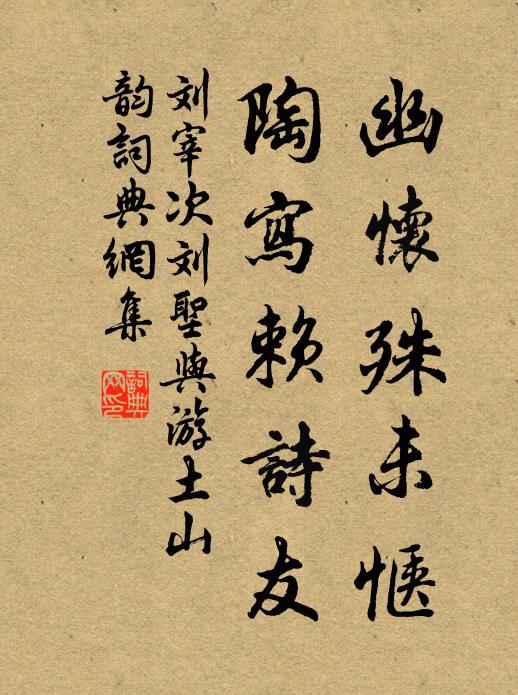 幽懷殊未愜
陶寫賴詩友
刘宰次刘聖與游土山
韵詞典網集
詞典网印